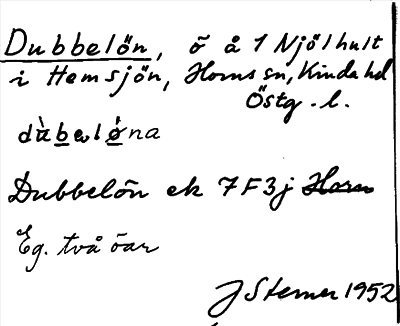 Dubbelön, ö å 1 Njölhult
i Hemsjön, Horns sn, Kinda hd
Östg. l.
dù̀bəlø̀na
Dubbelön ek 7F3j Horn
Eg. två öar
J Sterner 1952